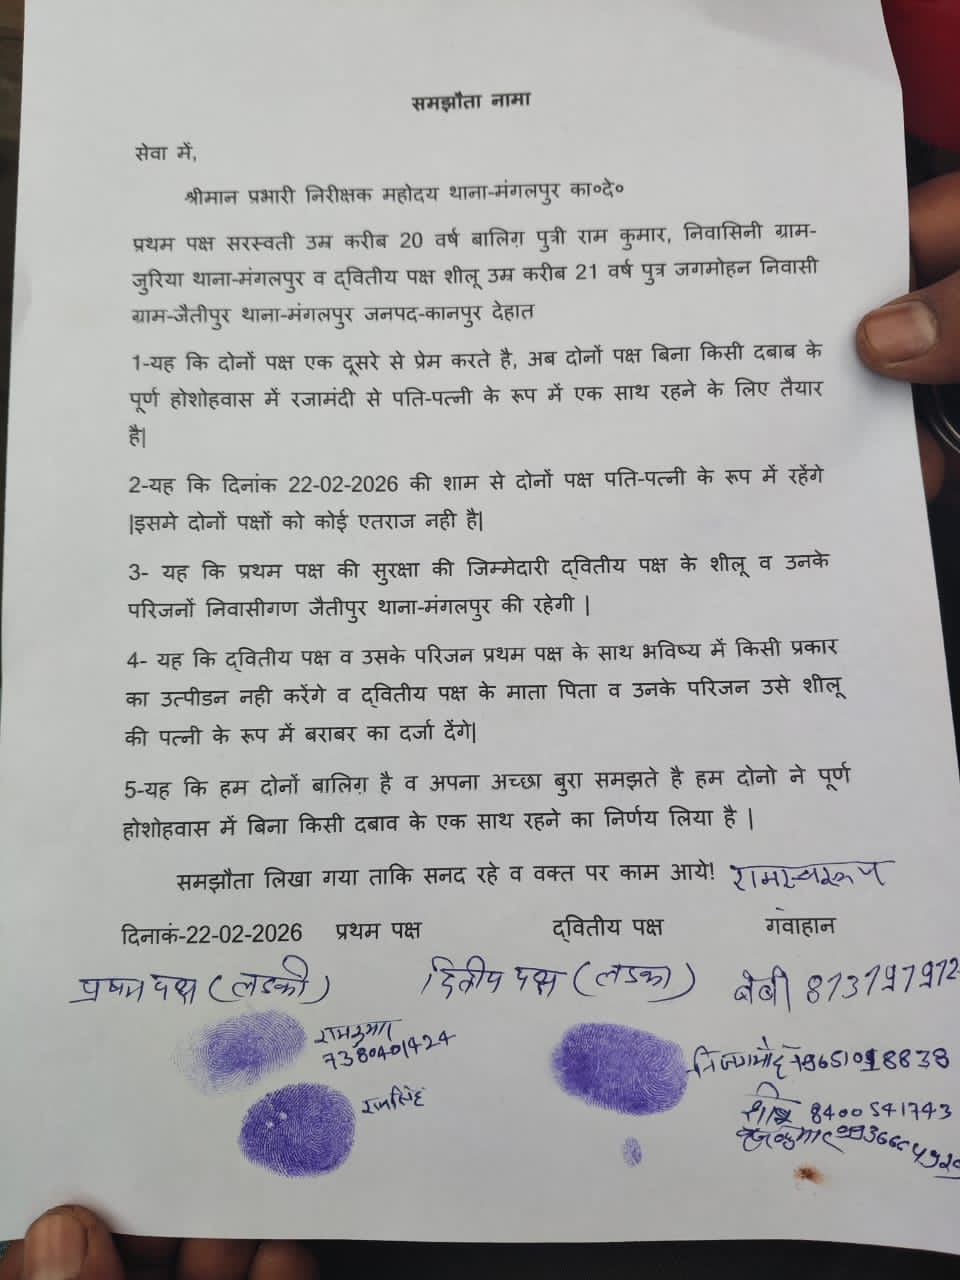 समझौता नामा
सेवा में,
श्रीमान प्रभारी निरीक्षक महोदय थाना-मंगलपुर का०दे०
प्रथम पक्ष सरस्वती उम्र करीब 20 वर्ष बालिग़ पुत्री राम कुमार, निवासिनी ग्राम-
जुरिया थाना-मंगलपुर व द्वितीय पक्ष शीलू उम्र करीब 21 वर्ष पुत्र जगमोहन निवासी
ग्राम-जैतीपुर थाना-मंगलपुर जनपद-कानपुर देहात
1-यह कि दोनों पक्ष एक दूसरे से प्रेम करते है, अब दोनों पक्ष बिना किसी दबाब के
पूर्ण होशोहवास में रजामंदी से पति-पत्नी के रूप में एक साथ रहने के लिए तैयार
है|
2-यह कि दिनांक 22-02-2026 की शाम से दोनों पक्ष पति-पत्नी के रूप में रहेंगे
|इसमे दोनों पक्षों को कोई एतराज नही है|
3- यह कि प्रथम पक्ष की सुरक्षा की जिम्मेदारी द्वितीय पक्ष के शीलू व उनके
परिजनों निवासीगण जैतीपुर थाना-मंगलपुर की रहेगी |
4- यह कि द्वितीय पक्ष व उसके परिजन प्रथम पक्ष के साथ भविष्य में किसी प्रकार
का उत्पीडन नही करेंगे व द्वितीय पक्ष के माता पिता व उनके परिजन उसे शीलू
की पत्नी के रूप में बराबर का दर्जा देंगे|
5-यह कि हम दोनों बालिग़ है व अपना अच्छा बुरा समझते है हम दोनो ने पूर्ण
होशोहवास में बिना किसी दबाव के एक साथ रहने का निर्णय लिया है |
समझौता लिखा गया ताकि सनद रहे व वक्त पर काम आये! रामस्वरूप
दिनाकं-22-02-2026 प्रथम पक्ष द्वितीय पक्ष गवाहान
प्रथम पक्ष (लडकी) द्वितीय पक्ष (लडका) बेबी 873797972
रामकुमार
7380401424
राजसिंह
8400541743